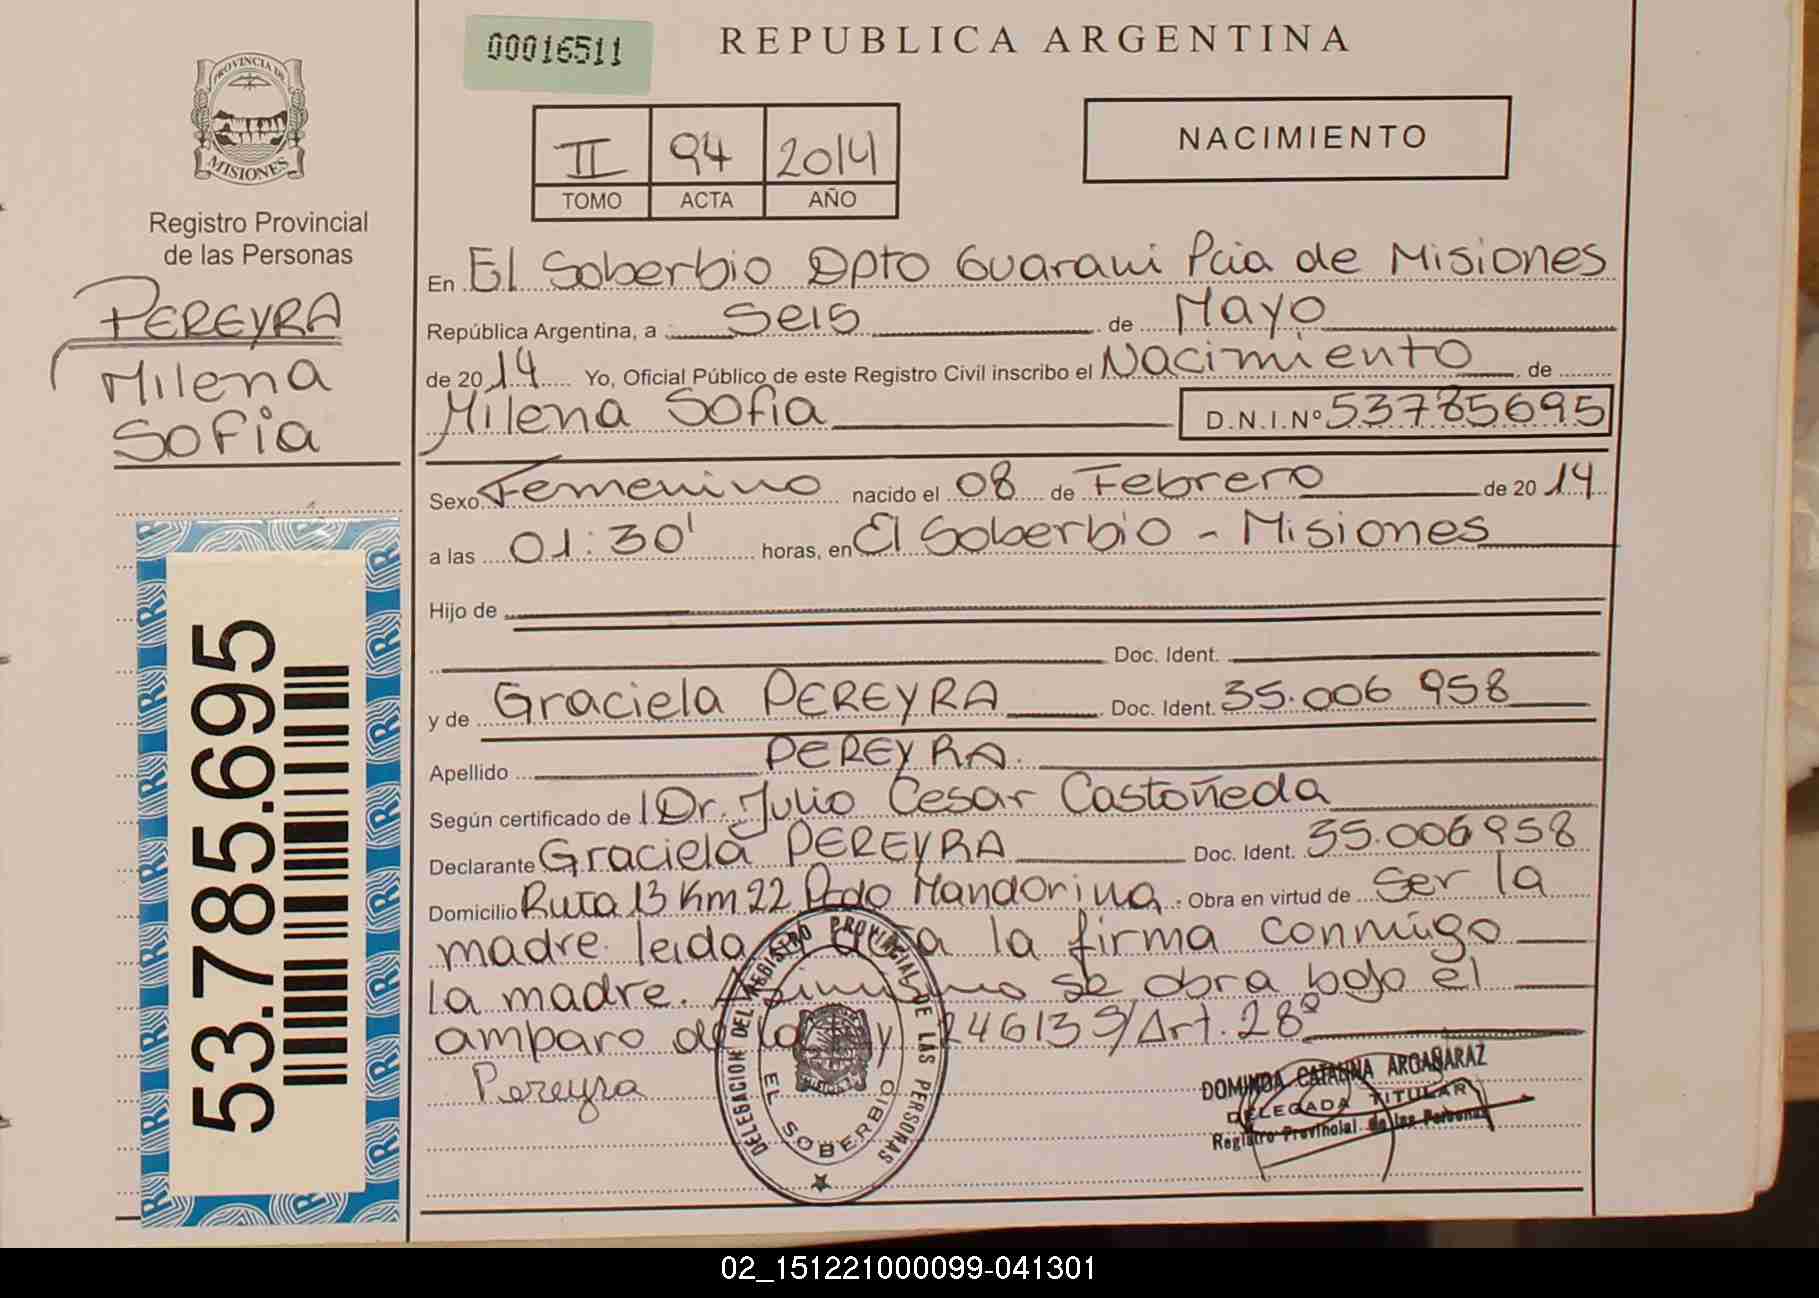 00016511
REPUBLICA ARGENTINA
PROVINCIA DE
MISIONES
Registro Provincial
de las Personas
PEREYRA
Milena
Sofia
53.785.695
II 94 2014
TOMO ACTA AÑO
NACIMIENTO
En El Soberbio Dpto Guarani Pcia de Misiones
República Argentina, a Seis de Mayo
de 2014 Yo, Oficial Público de este Registro Civil inscribo el Nacimiento de
Milena Sofia D.N.I.Nº 53785695
Sexo Femenino nacido el 08 de Febrero de 2014
a las 01:30' horas, en El Soberbio - Misiones
Hijo de
Doc. Ident.
y de Graciela PEREYRA Doc. Ident. 35.006 958
Apellido PEREYRA
Según certificado de Dr. Julio Cesar Castoñeda
Declarante Graciela PEREYRA Doc. Ident. 35.006958
Domicilio Ruta 13 Km 22 Pcdo Mandorina. Obra en virtud de Ser la
madre. leida la firma conmigo
la madre. Asimismo se obra bajo el
amparo de la 24613 S/Art. 28º
Pereyra
DELEGACION DEL REGISTRO PROVINCIAL DE LAS PERSONAS
EL SOBERBIO
DOMINDA CATALINA ARGAÑARAZ
DELEGADA TITULAR
Registro Provincial de las Personas
02_151221000099-041301